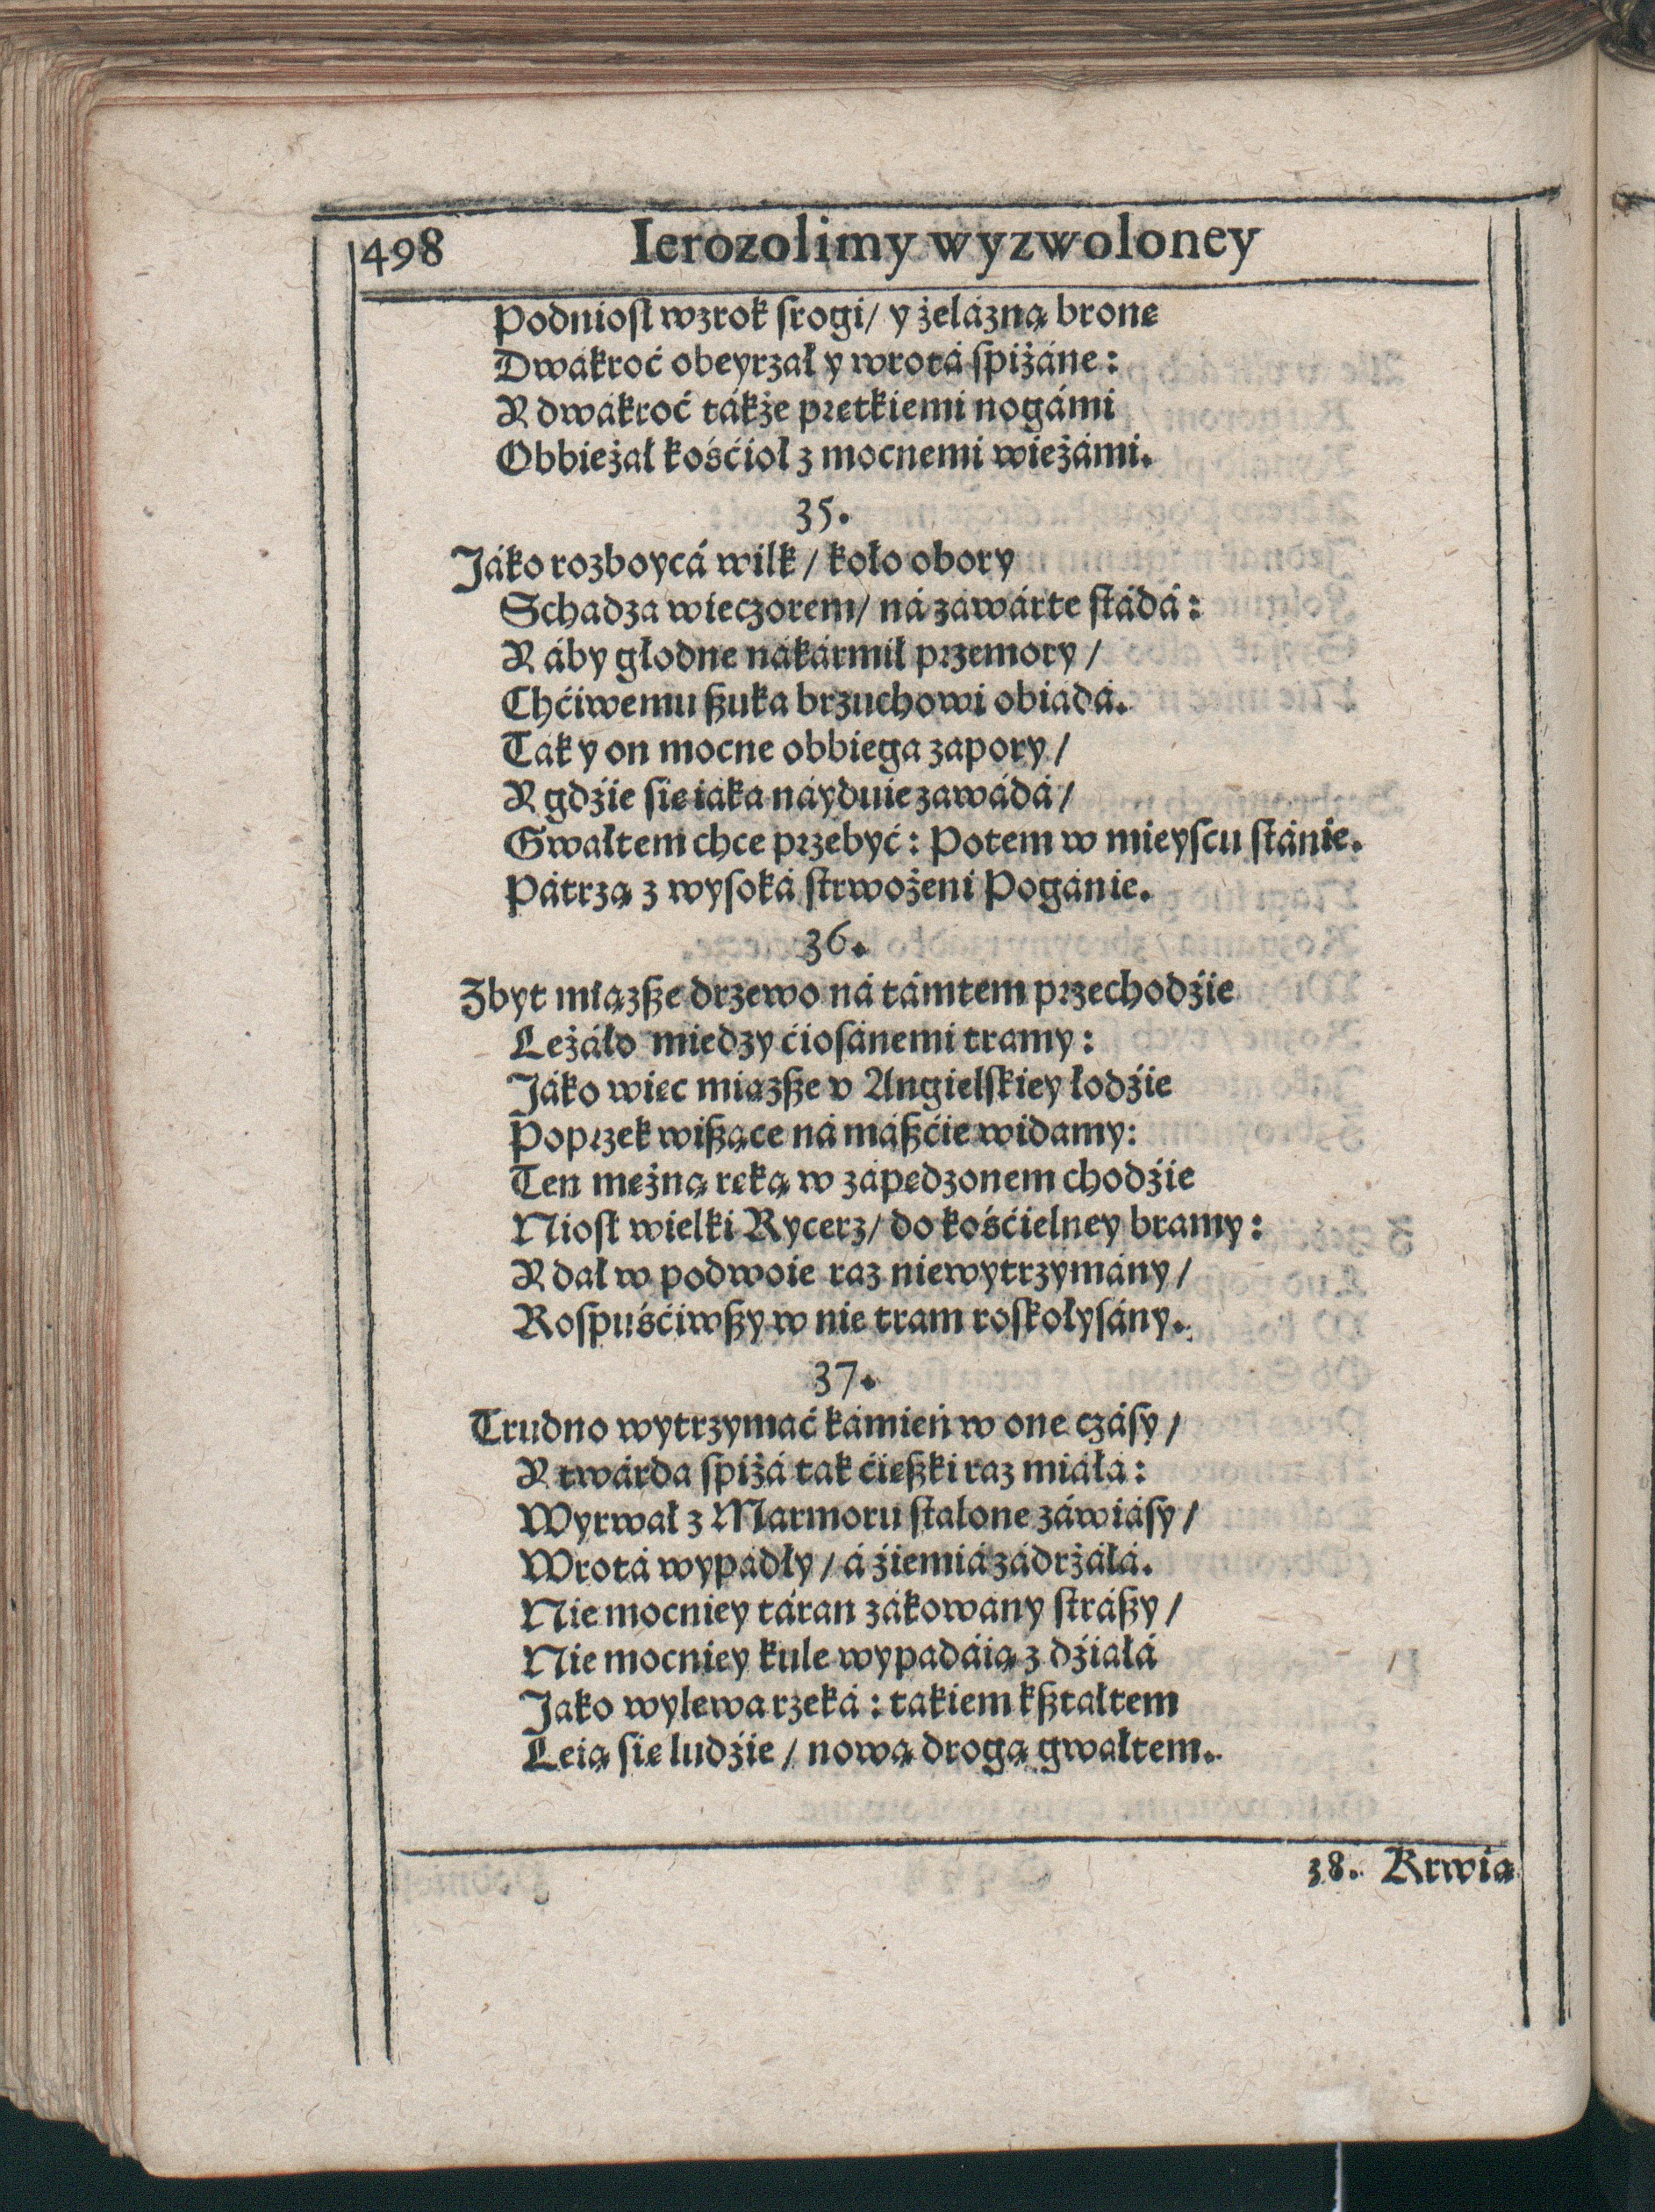 498 Ierozolimy wyzwoloney
Podniosł wzrok srogi/ y żelázną bronę
Dwákroć obeyrzał y wrotá spiżáne:
Y dwákroć tákże prętkiemi nogámi
Obbieżał kośćioł z mocnemi wieżámi.
35.
Jáko rozboycá wilk/ koło obory
Schadza wieczorem/ ná záwárte stádá:
Y áby głodne nákármił przemory/
Chćiwemu szuka brzuchowi obiádá.
Tak y on mocne obbiega zapory/
Y gdźie się iáka náyduie zawádá/
Gwałtem chce przebyć: Potem w mieyscu stánie.
Pátrzą z wysoká strwożeni Pogánie.
36.
Zbyt miąższe drzewo ná támtem przechodźie
Leżáło miedzy ćiosánemi tramy:
Jáko więc miąższe v Angielskiey łodźie
Poprzek wiszące ná maszćie widamy:
Ten mężną ręką w zápędzonem chodźie
Niosł wielki Rycerz/ do kośćielney bramy:
Y dał w podwoie raz niewytrzymány/
Rospuśćiwszy w nie tram roskołysány.
37.
Trudno wytrzymáć kámień w one czásy/
Y twárda spiżá tak ćięszki raz miáłá:
Wyrwał z Marmoru stalone záwiásy/
Wrotá wypádły/ á źiemiá zádrżáłá.
Nie mocniey táran zákowány strászy/
Nie mocniey kule wypadáią z dźiáłá
Jako wylewa rzeká: takiem kształtem
Leią się ludźie/ nową drogą gwałtem.
38. Krwią